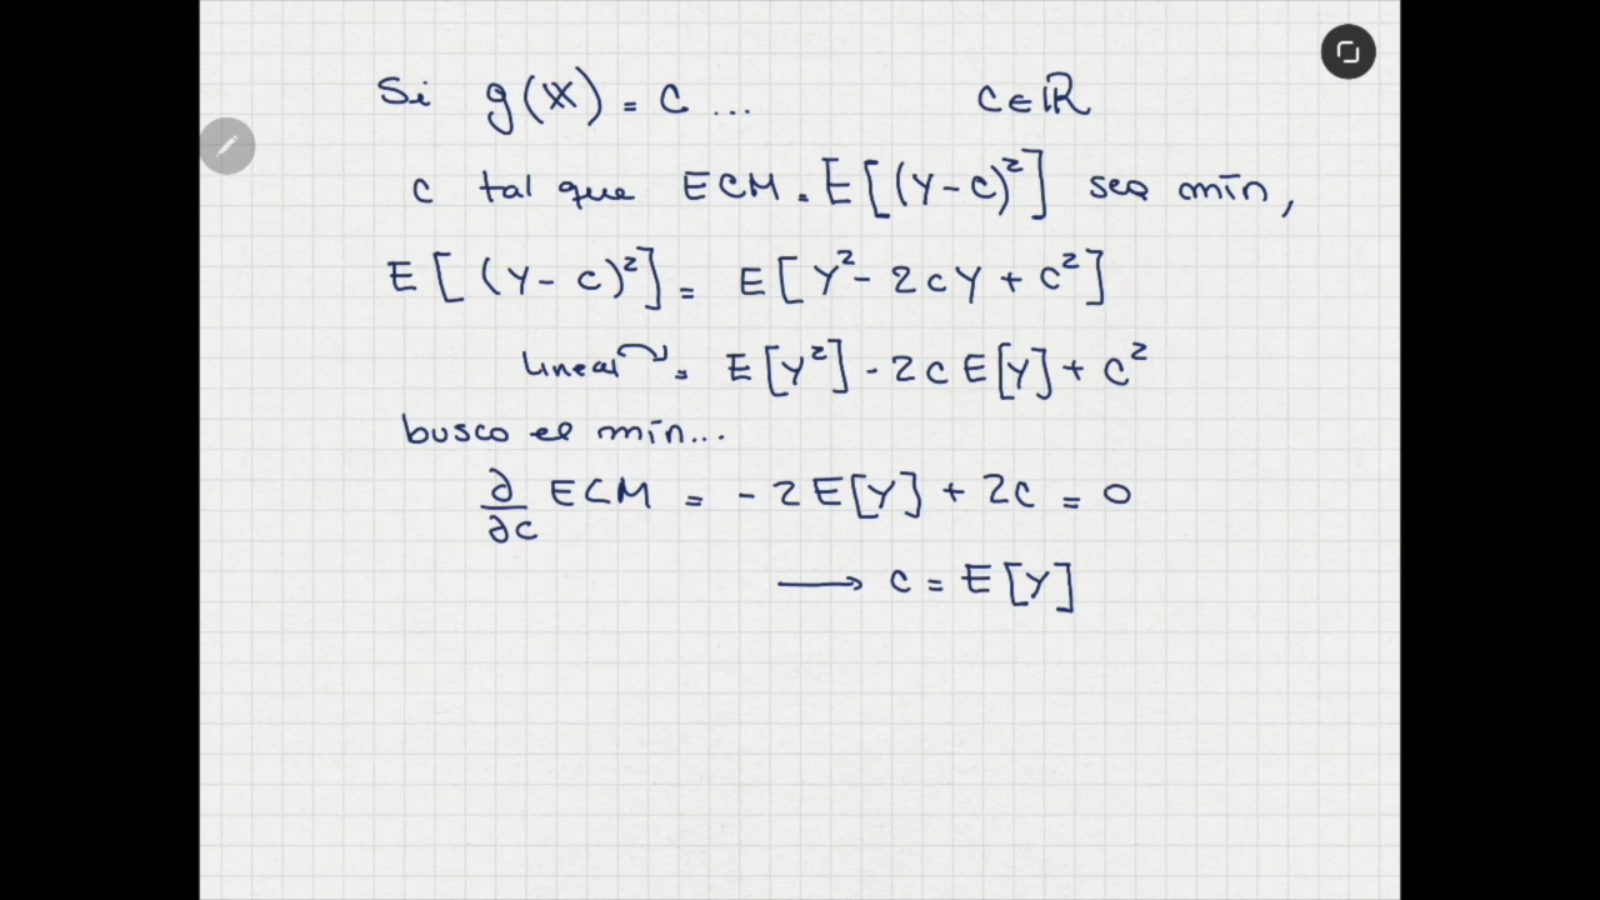 Si g(X) = c ... c ∈ ℝ
c tal que ECM = E[(Y - c)²] sea mín,
E[(Y - c)²] = E[Y² - 2cY + c²]
lineal = E[Y²] - 2c E[Y] + c²
busco el mín...
∂/∂c ECM = -2E[Y] + 2c = 0
→ c = E[Y]